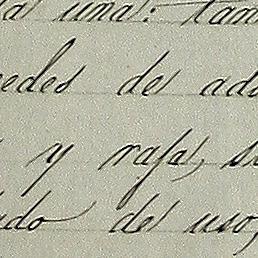 a una: tam
edes de ado
y rafa, s
do de uso,